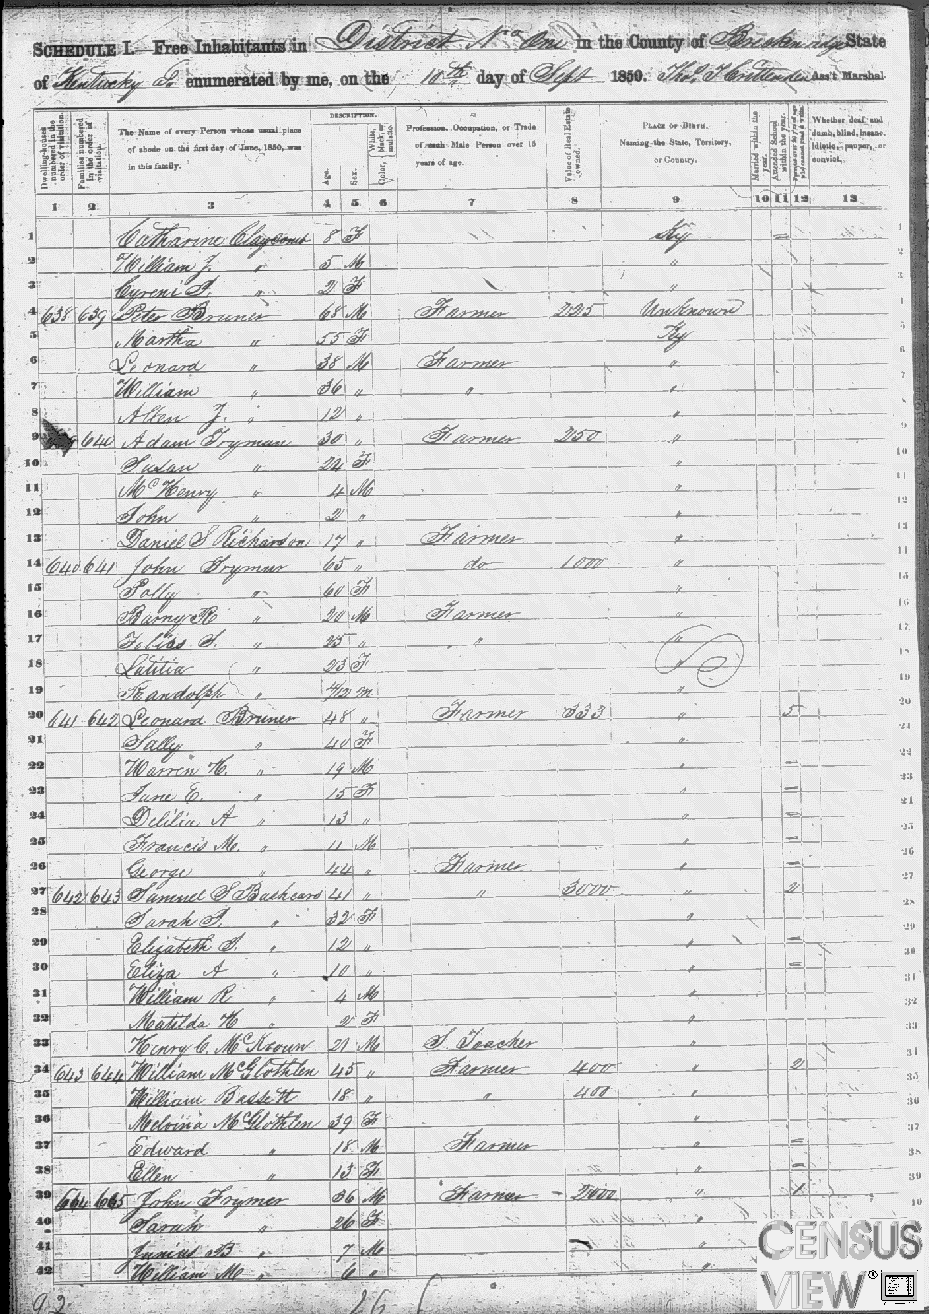 SCHEDULE I.—Free Inhabitants in District No One in the County of Breckenridge State
of Kentucky enumerated by me, on the 10th day of Sept 1850. Thos. J Crittenden Ass't Marshal.
Dwelling-houses numbered in the order of visitation. Families numbered in the order of visitation. The Name of every Person whose usual place of abode on the first day of June, 1850, was in this family. DESCRIPTION. Age. Sex. Color, White, black, or mulatto. Profession, Occupation, or Trade of each Male Person over 15 years of age. Value of Real Estate owned. PLACE OF BIRTH. Naming the State, Territory, or Country. Married within the year. Attended School within the year. Whether deaf and dumb, blind, insane, idiotic, pauper, or convict.
1 2 3 4 5 6 7 8 9 10 11 12 13
1 Catharine Claycomb 8 F Ky 1
2 William J. " 5 M " 2
3 Cyreni F. " 2 F " 3
4 638 639 Peter Bruner 68 M Farmer 225 Unknown 4
5 Martha " 55 F Ky 5
6 Leonard " 38 M Farmer " 6
7 William " 36 " " " 7
8 Allen J. " 12 " " 8
9 640 Adam Frymar 30 " Farmer 250 "
10 Susan " 24 F " 10
11 McHenry " 4 M "
12 John " 2 " "
13 Daniel S Richardson 17 " Farmer "
14 640 641 John Frymar 65 " do 1000 "
15 Polly " 60 F " 15
16 Barny R " 20 M Farmer " 16
17 Tobias S. " 25 " " " 17
18 Latitia " 23 F " 18
19 Randolph " /12 m " 19
20 641 642 Leonard Bruner 48 " Farmer 333 " 5 20
21 Sally " 40 F "
22 Warren H. " 19 M "
23 Jane E. " 15 F "
24 Delilia A " 13 " "
25 Francis M. " 11 M "
26 George " 44 " Farmer "
27 642 643 Samuel S Bashears 41 " " 3000 " 2
28 Sarah F. " 32 F "
29 Elizabeth S. " 12 " "
30 Eliza A " 10 " "
31 William R " 4 M "
32 Matilda H " 2 F "
33 Henry C. McKoown 21 M S. Teacher "
34 643 644 William McGlothlen 45 " Farmer 400 " 2
35 William Bassett 18 " " 400 "
36 Melvina McGlothlen 39 F "
37 Edward " 18 M Farmer "
38 Ellen " 13 F "
39 664 665 John Frymer 36 M Farmer 2000 " 1
40 Sarah " 26 F "
41 Junius B " 7 M "
42 William M " 6 " "
92
CENSUS
VIEW®